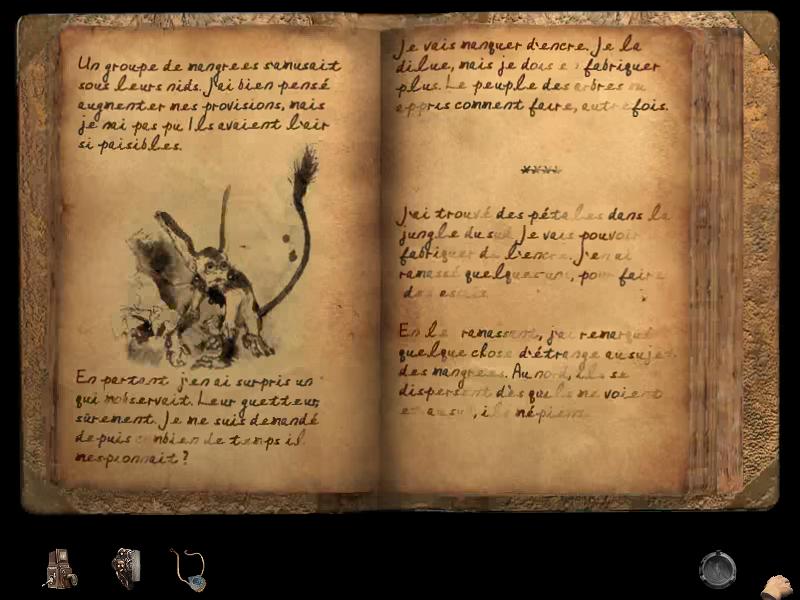 Un groupe de mangrees s'amusait
sous leurs nids. J'ai bien pensé
augmenter mes provisions, mais
je n'ai pas pu Ils avaient l'air
si paisibles.
En partant j'en ai surpris un
qui m'observait. Leur guetteur,
sûrement. Je me suis demandé
depuis combien de temps il
m'espionnait?
Je vais manquer d'encre. Je la
dilue, mais je dois en fabriquer
plus. Le peuple des arbres m'a
appris comment faire, autrefois.
xxxx
J'ai trouvé des pétales dans la
jungle du sud. Je vais pouvoir
fabriquer de l'encre. J'en ai
ramassé quelques uns, pour faire
des essais.
En les ramassant, j'ai remarqué
quelque chose d'étrange au sujet
des mangrees. Au nord, ils se
dispersent dès qu'ils me voient
et au sud, ils m'épient.